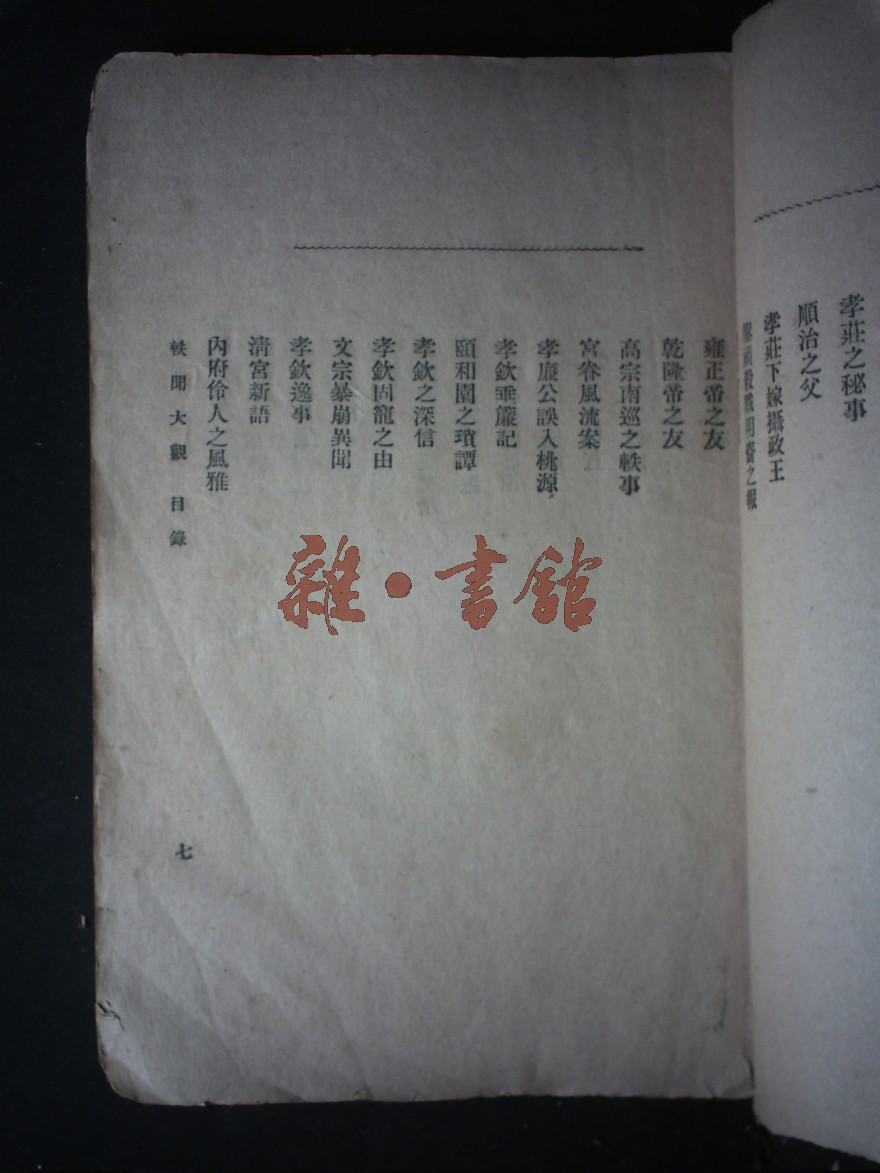 孝莊之秘事
順治之父
孝莊下嫁攝政王
之報
雍正帝之友
乾隆帝之友
高宗南巡之軼事
宮眷風流案
孝廉公誤入桃源
孝欽垂簾記
頤和園之瑣譚
孝欽之深信
孝欽固寵之由
文宗暴崩異聞
孝欽逸事
清宮新語
內府伶人之風雅
軼聞大觀 目錄
七
雜·書館